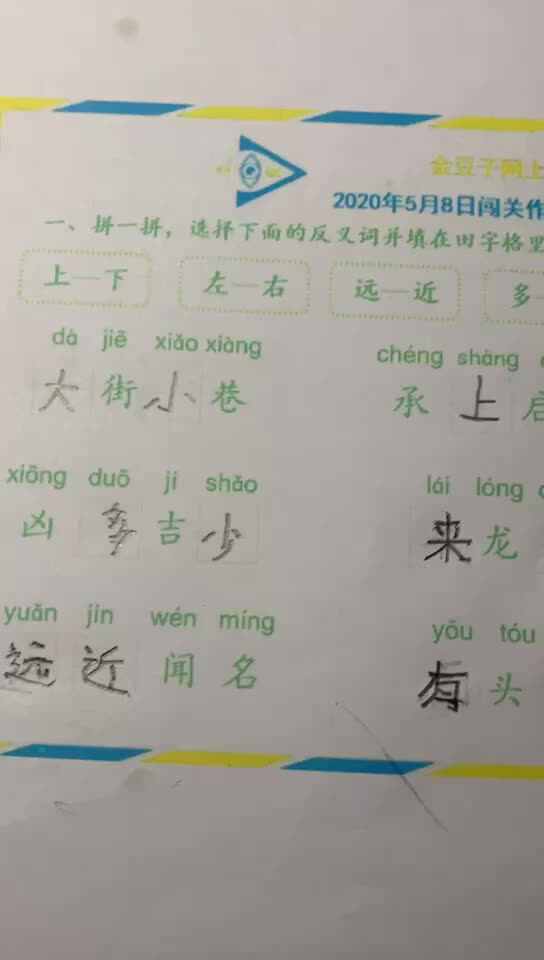 金豆子网上
2020年5月8日闯关作
一、拼一拼，选择下面的反义词并填在田字格里
上—下 左—右 远—近 多—
dà jiē xiǎo xiàng chéng shàng
大街小巷 承上启
xiōng duō jí shǎo lái lóng
凶多吉少 来龙
yuǎn jìn wén míng yǒu tóu
远近闻名 有头